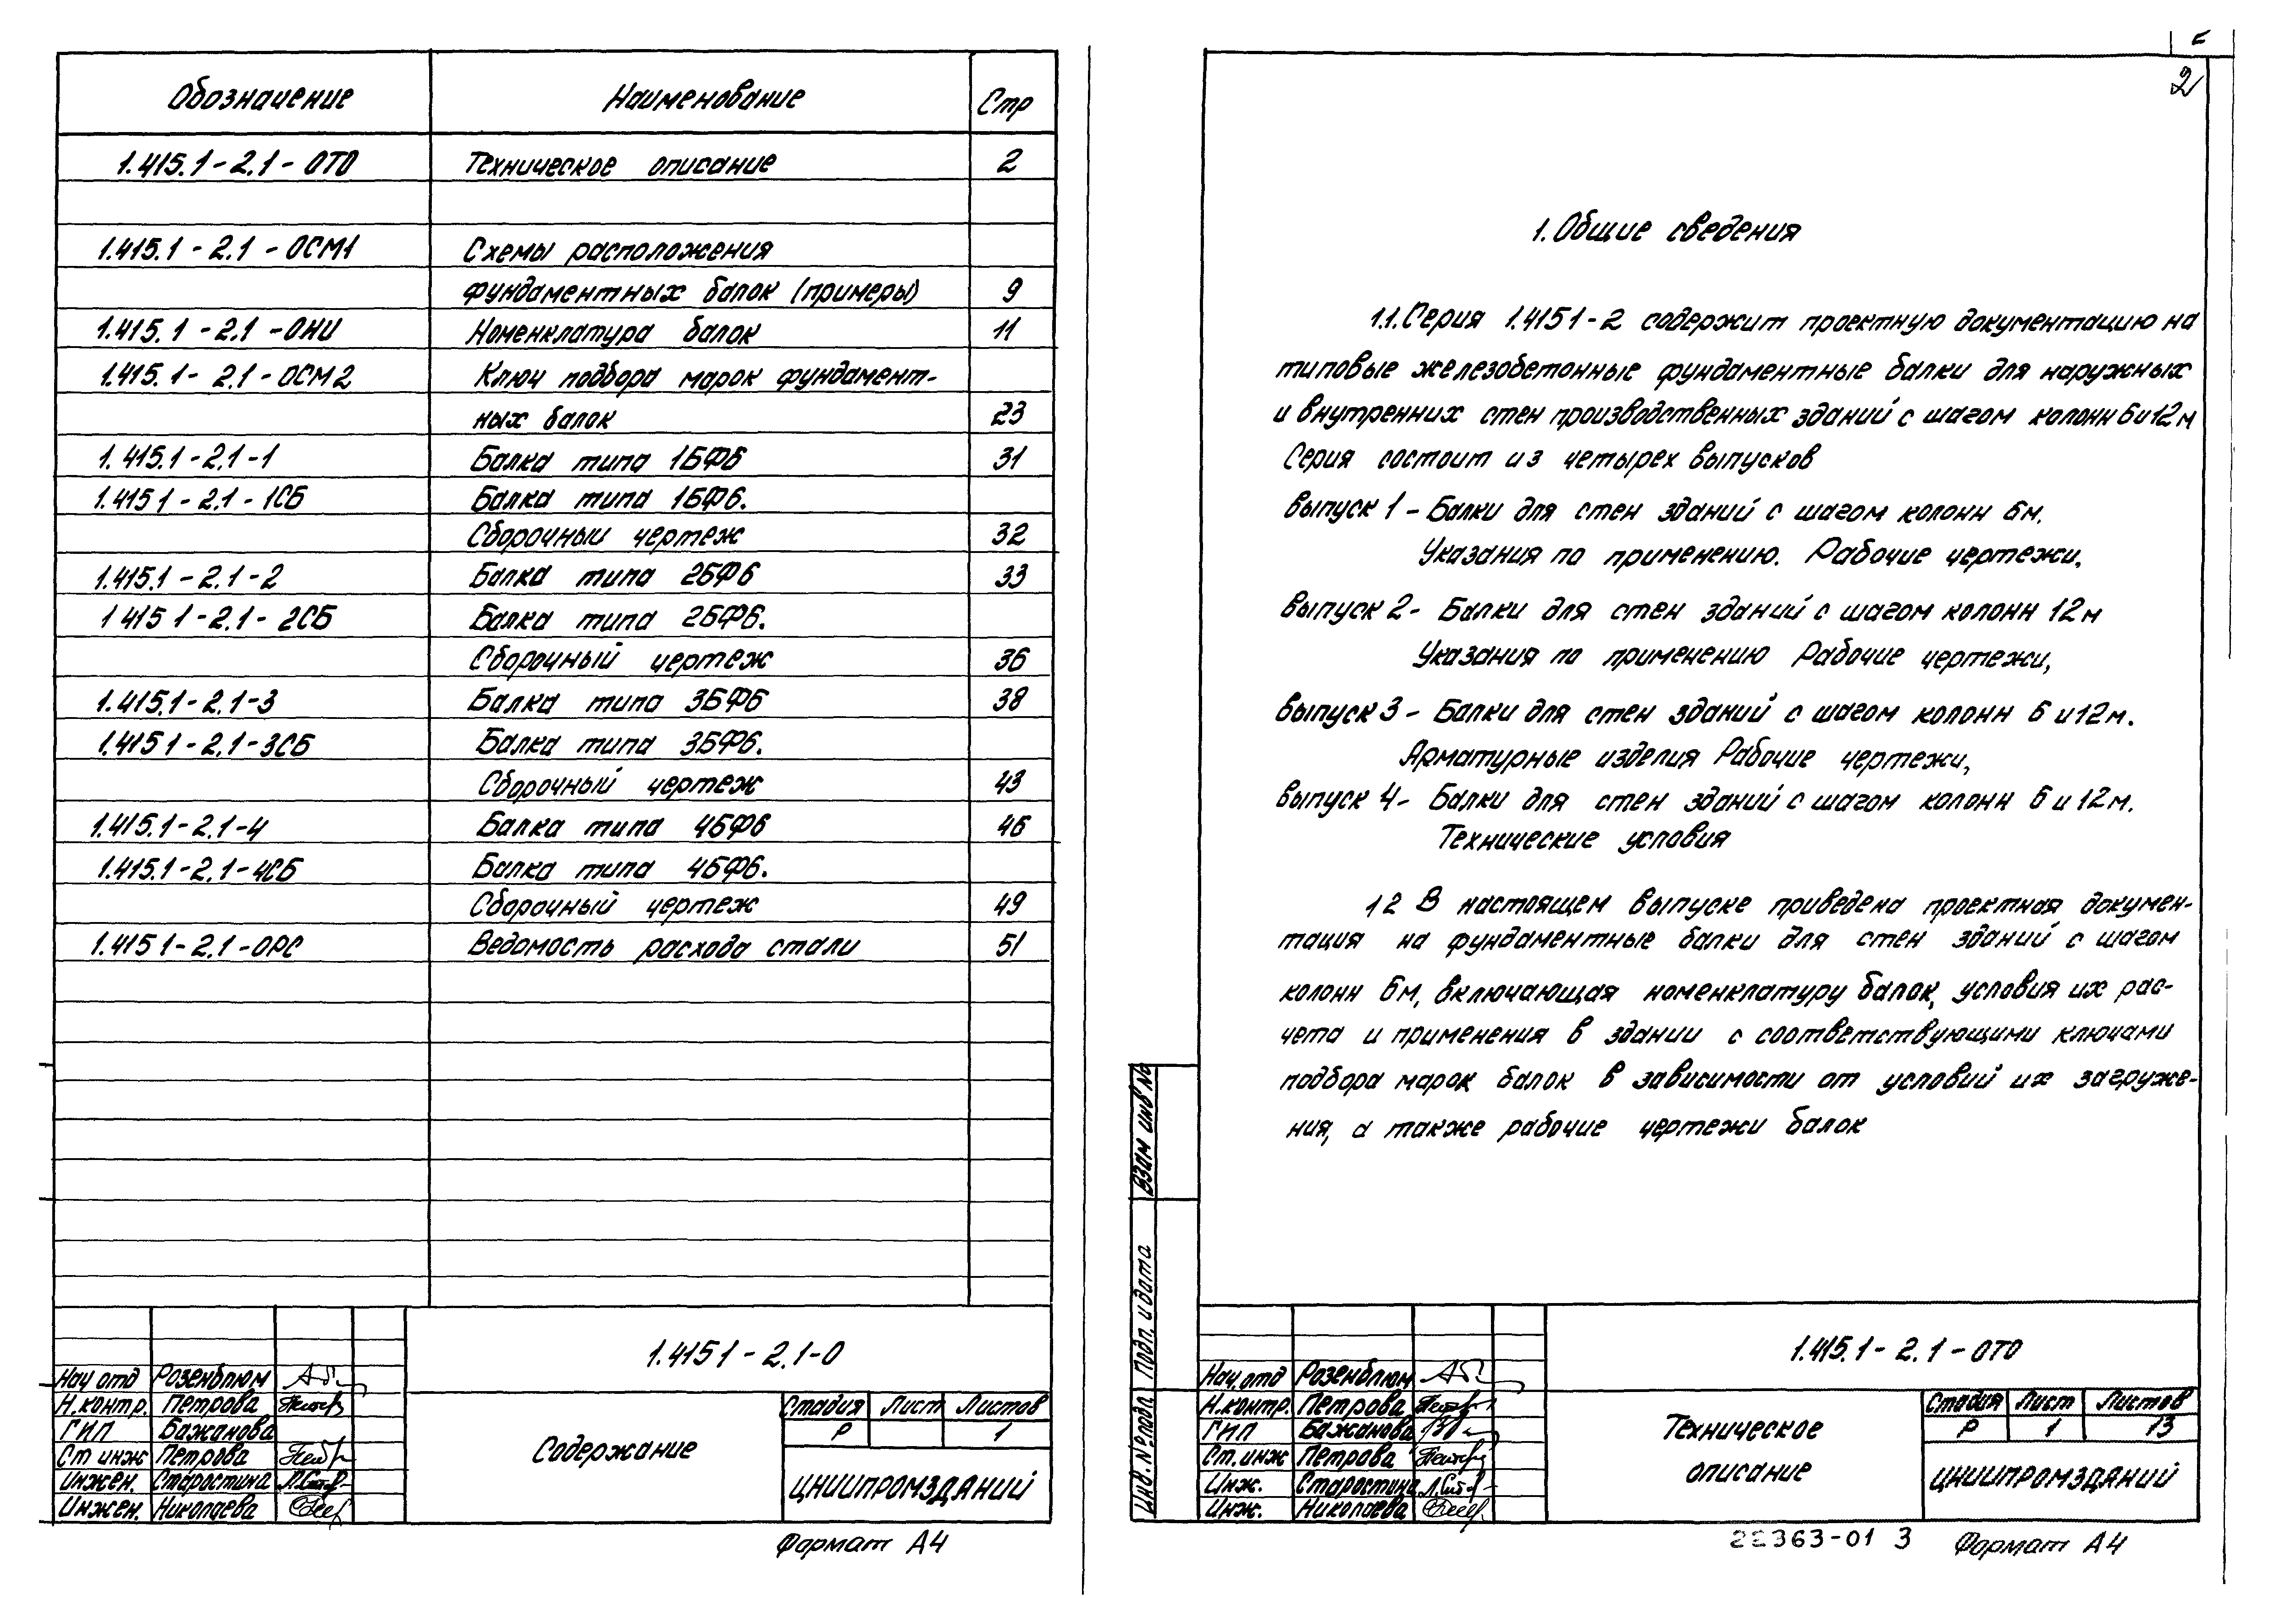 Обозначение Наименование Стр
1.415.1-2.1-ОТО Техническое описание 2
1.415.1-2.1-ОСМ1 Схемы расположения
фундаментных балок (примеры) 9
1.415.1-2.1-ОНИ Номенклатура балок 11
1.415.1-2.1-ОСМ2 Ключ подбора марок фундамент-
ных балок 23
1.415.1-2.1-1 Балка типа 1БФ6 31
1.415 1-2.1-1СБ Балка типа 1БФ6.
Сборочный чертеж 32
1.415.1-2.1-2 Балка типа 2БФ6 33
1 415 1-2.1-2СБ Балка типа 2БФ6.
Сборочный чертеж 36
1.415.1-2.1-3 Балка типа 3БФ6 38
1.415 1-2.1-3СБ Балка типа 3БФ6.
Сборочный чертеж 43
1.415.1-2.1-4 Балка типа 4БФ6 46
1.415.1-2.1-4СБ Балка типа 4БФ6.
Сборочный чертеж 49
1.415 1-2.1-ОРС Ведомость расхода стали 51
1.415 1-2.1-0
Нач отд Розенблюм
Н.контр. Петрова
ГИП Бажанова
Ст инж Петрова
Инжен. Старостина
Инжен. Николаева
Содержание
Стадия Лист Листов
Р 1
ЦНИИПРОМЗДАНИЙ
Формат А4
2
1. Общие сведения
1.1. Серия 1.415 1-2 содержит проектную документацию на
типовые железобетонные фундаментные балки для наружных
и внутренних стен производственных зданий с шагом колонн 6 и 12 м
Серия состоит из четырех выпусков
выпуск 1 - Балки для стен зданий с шагом колонн 6м.
Указания по применению. Рабочие чертежи.
выпуск 2 - Балки для стен зданий с шагом колонн 12м
Указания по применению Рабочие чертежи,
выпуск 3 - Балки для стен зданий с шагом колонн 6 и 12м.
Арматурные изделия Рабочие чертежи,
выпуск 4 - Балки для стен зданий с шагом колонн 6 и 12м.
Технические условия
1 2 В настоящем выпуске приведена проектная докумен-
тация на фундаментные балки для стен зданий с шагом
колонн 6м, включающая номенклатуру балок, условия их рас-
чета и применения в здании с соответствующими ключами
подбора марок балок в зависимости от условий их загруже-
ния, а также рабочие чертежи балок
Взам инв №
Подп. и дата
Инв. № подл
1.415.1-2.1-ОТО
Нач.отд Розенблюм
Н.контр. Петрова
ГИП Бажанова
Ст.инж Петрова
Инж. Старостина
Инж. Николаева
Техническое
описание
Стадия Лист Листов
Р 1 13
ЦНИИПРОМЗДАНИЙ
22363-01 3 Формат А4